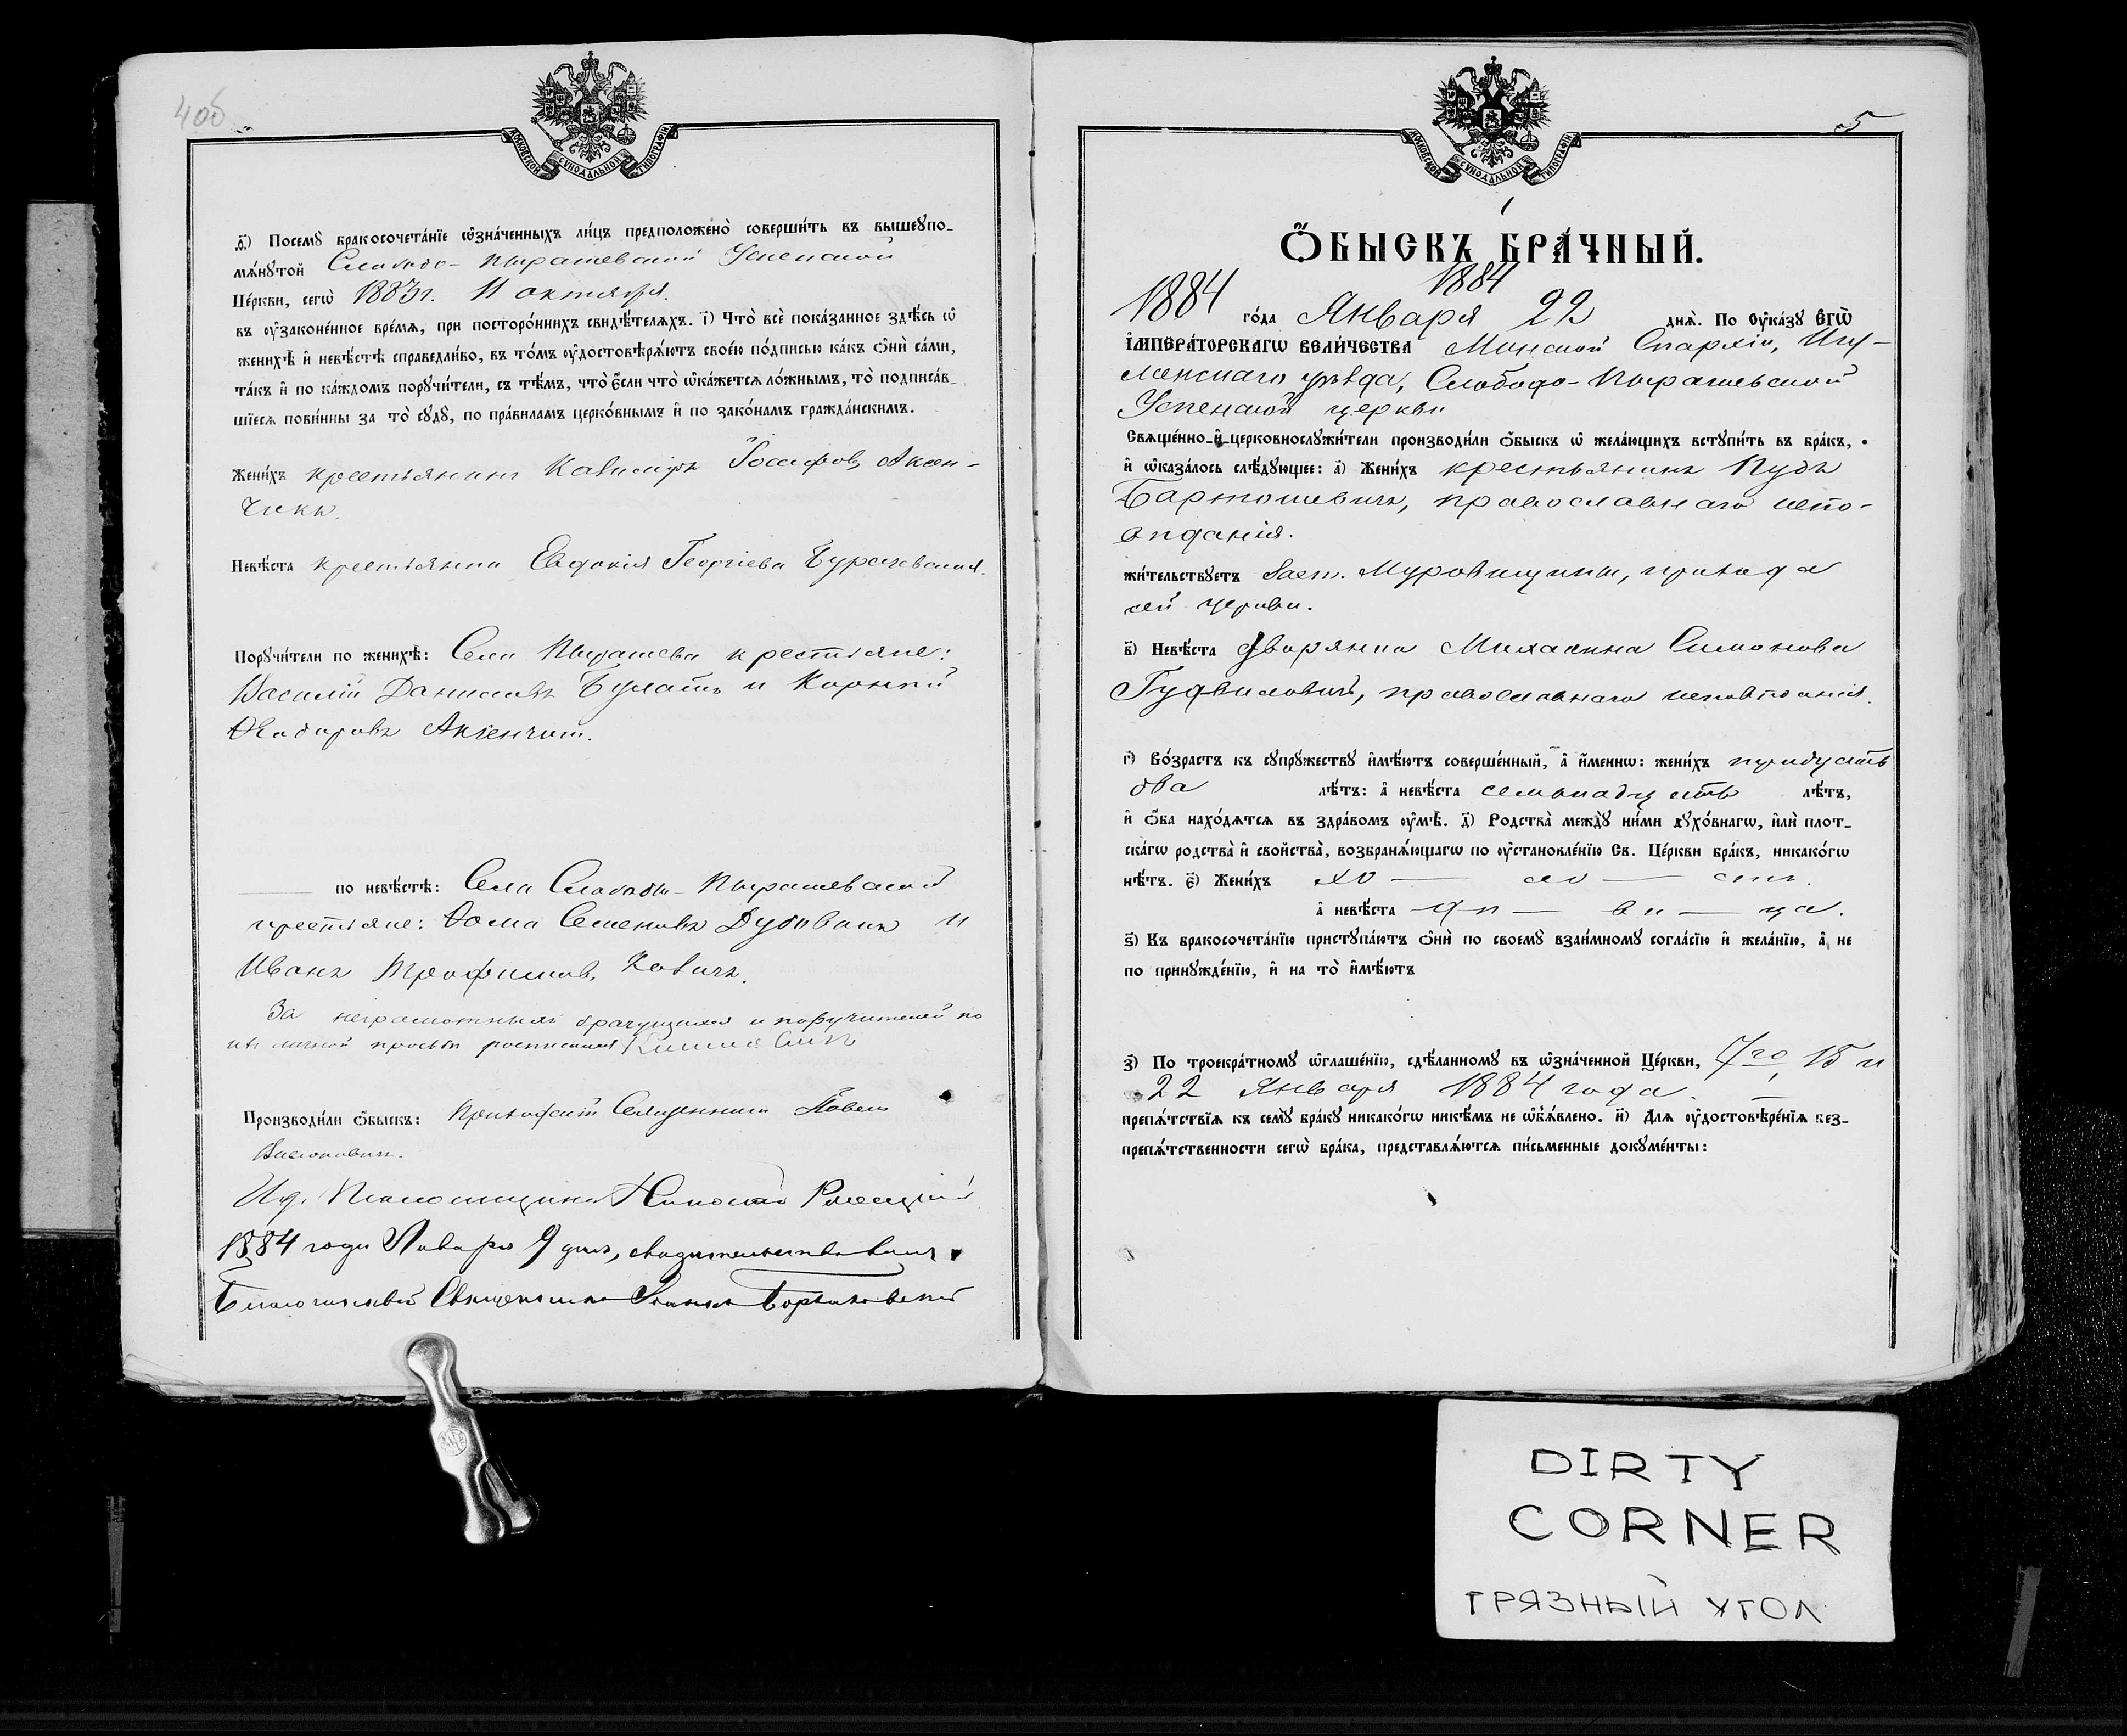 4об
МОСКОВСКОЙ СѴНОДАЛЬНОЙ ТИПОГРАФІИ
ѳ҃) Посемꙋ̀ бракосочета́нїе ѡ҆зна́ченныхъ ли́цъ предположено̀ соверши́ть въ вышеꙋпо-
мѧ́нꙋтой Слободо-Пырашевской Успенской
Це́ркви, сегѡ̀ 1883 г. 11 октября.
въ ᲂу҆законе́нное вре́мѧ, при посторо́ннихъ свидѣ́телѧхъ. і҃) Что̀ всѐ пока́занное здѣ́сь ѡ҆
женихѣ̀ и҆ невѣ́стѣ справедли́во, въ то́мъ ᲂу҆достовѣрѧ́ютъ свое́ю по́дписью ка́къ ѻ҆нѝ са́ми,
та́къ и҆ по ка́ждомъ порꙋчи́тели, съ тѣ́мъ, что̀ є҆́сли что̀ ѡ҆ка́жетсѧ ло́жнымъ, то̀ подписа́в-
шїесѧ пови́нны за то̀ сꙋдꙋ̀, по пра́виламъ церко́внымъ и҆ по зако́намъ гражда́нскимъ.
Жени́хъ крестьянинъ Іосифовъ Аксен-
чикъ.
Невѣ́ста крестьянка Евдокія Георгіева
Порꙋчи́тели по женихѣ̀: Села Пырашева крестьяне:
Василій Даниловъ Булатъ и Корнилій
Ѳеодоровъ Аксенчикъ.
по невѣ́стѣ: Села Слободы-Пырашевской
крестьяне: Ѳома Семеновъ Дубовикъ и
Иванъ Трофимовъ
За неграмотныхъ брачущихся и поручителей по
ихъ личной просьбѣ росписался
Производи́ли ѻ҆́быскъ: Приходскій Священникъ Павелъ
И. д. Псаломщика Николай
1884 года Января 9 дня, свидѣтельствовалъ
Благочинный Священникъ
5
МОСКОВСКОЙ СѴНОДАЛЬНОЙ ТИПОГРАФІИ
1
Ѻ҆́БЫСКЪ БРА́ЧНЫЙ.
1884
1884 го́да Января 22 днѧ̀. По Оу҆ка́зꙋ Є҆гѡ̀
І҆мпера́торскагѡ вели́чества Минской Епархіи, Игу-
менскаго уѣзда, Слободо-Пырашевской
Успенской церкви
Свѧще́нно-и҆-церковнослꙋжи́тели производи́ли ѻ҆́быскъ ѡ҆ жела́ющихъ встꙋпи́ть въ бра́къ,
и҆ ѡ҆каза́лось слѣ́дꙋющее: а҃) Жени́хъ крестьянинъ Пудъ
Бартошевичъ, православнаго испо-
вѣданія.
жи́тельствꙋетъ Заст. Муровищины, прихода
сей церкви.
в҃) Невѣ́ста дворянка Михалина Симонова
православнаго исповѣданія.
г҃) Во́зрастъ къ сꙋпрꙋ́жествꙋ и҆мѣ́ютъ соверше́нный, а҆ и҆́меннѡ: жени́хъ тридцать
два лѣ́тъ: а҆ невѣ́ста семьнадцать лѣ́тъ,
и҆ ѻ҆́ба нахо́дѧтсѧ въ здра́вомъ ᲂу҆мѣ̀. д҃) Родства̀ междꙋ̀ ни́ми дꙋхо́внагѡ, и҆лѝ плот-
ска́гѡ родства̀ и҆ сво́йства̀, возбранѧ́ющагѡ по ᲂу҆становле́нїю Св. Це́ркви бра́къ, никако́гѡ
нѣ́тъ. є҃) Жени́хъ хо — ло — стъ.
а҆ невѣ́ста дѣ — ви — ца.
ѕ҃) Къ бракосочета́нїю пристꙋпа́ютъ ѻ҆нѝ по своемꙋ̀ взаи́мномꙋ согла́сїю и҆ жела́нїю, а҆ не
по принꙋжде́нїю, и҆ на то̀ и҆мѣ́ютъ
з҃) По троекра́тномꙋ ѡ҆глаше́нїю, сдѣ́ланномꙋ въ ѡ҆зна́ченной Це́ркви, 15 и
22 Января 1884 года.
препѧ́тствїѧ къ семꙋ̀ бра́кꙋ никако́гѡ никѣ́мъ не ѡ҆б̾ѧ́влено. и҃) Длѧ ᲂу҆достовѣре́нїѧ без-
препѧ́тственности сегѡ̀ бра́ка, представлѧ́ютсѧ пи́сьменные докꙋме́нты:
DIRTY
CORNER
ГРЯЗНЫЙ УГОЛ